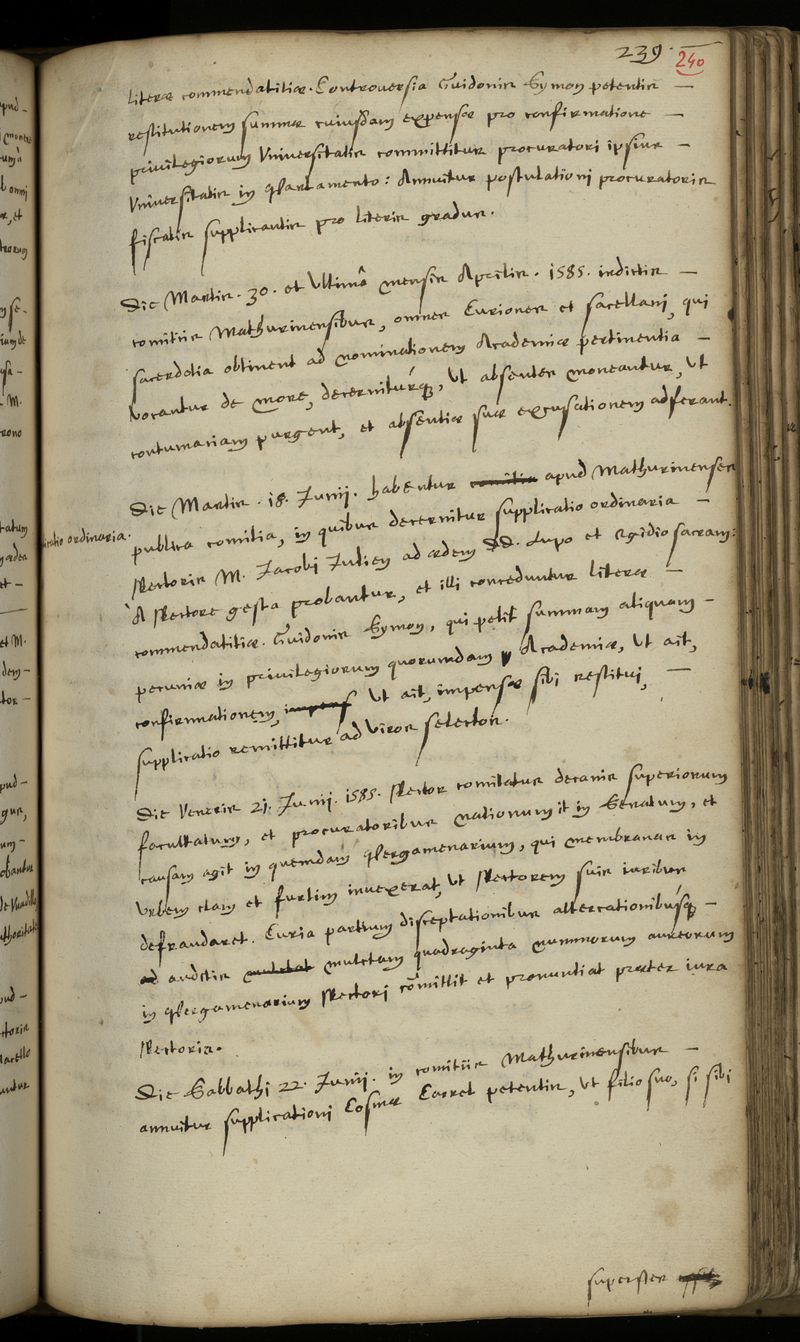 239. 240
literæ commendatitiæ. Controversia Guidonis Symon petentis —
restitutionem summæ cuiusdam expensæ pro confirmatione —
privilegiorum Universitatis committitur procuratori ipsius —
Universitatis in Parlamento: Annuitur postulationi procuratoris
fiscalis supplicantis pro literis gradus.
Die Martis. 30. et Ultimâ mensis Aprilis. 1585. indictis —
comitiis Mathurinensibus, omnes Curiones et sacellani, qui
sacerdotia obtinent ad nominationem Academiæ pertinentia —
vocantur de more, decerniturq, Ut absentes moneantur, Ut
contumaciam purgent, et absentiæ suæ excusationem adferant.
Die Martis. 18. Junij. habentur comitia apud Mathurinenses
publica comitia, in quibus decernitur supplicatio ordinaria —
Rectoris M. Jacobi Julien ad ædem DD. Lupo et Ægidio sacram:
A Rectore gesta probantur, et illi conceduntur literæ —
commendatitiæ. Guidonis Symon, qui petit summam aliquam —
pecuniæ in privilegiorum quorumdam Academiæ, Ut ait,
confirmationem, impens Ut ait, impensæ sibi restitui, —
supplicatio remittitur ad viros selectos.
Die Veneris 21. Junij. 1585. Rector comitatus decanis superiorum
facultatum, et procuratoribus nationum it in Senatum, et
causam agit in quemdam Pergamenarium, qui membranas in
Urbem clam et furtim invexerat, Ut Rectorem suis iuribus
defraudaret. Curia partium disceptationibus altercationibúsq —
ad auditis mulctat mulctam quadraginta nummorum aureorum
in Pergamenarium Rectori cõmittit et pronuntiat præter iura
Rectoria.
Die Sabbathi 22. Junij. in comitiis Mathurinensibus —
annuitur supplicationi Cosmæ Carrel petentis, Ut filio suo, si sibi
superstes
ordinaria.